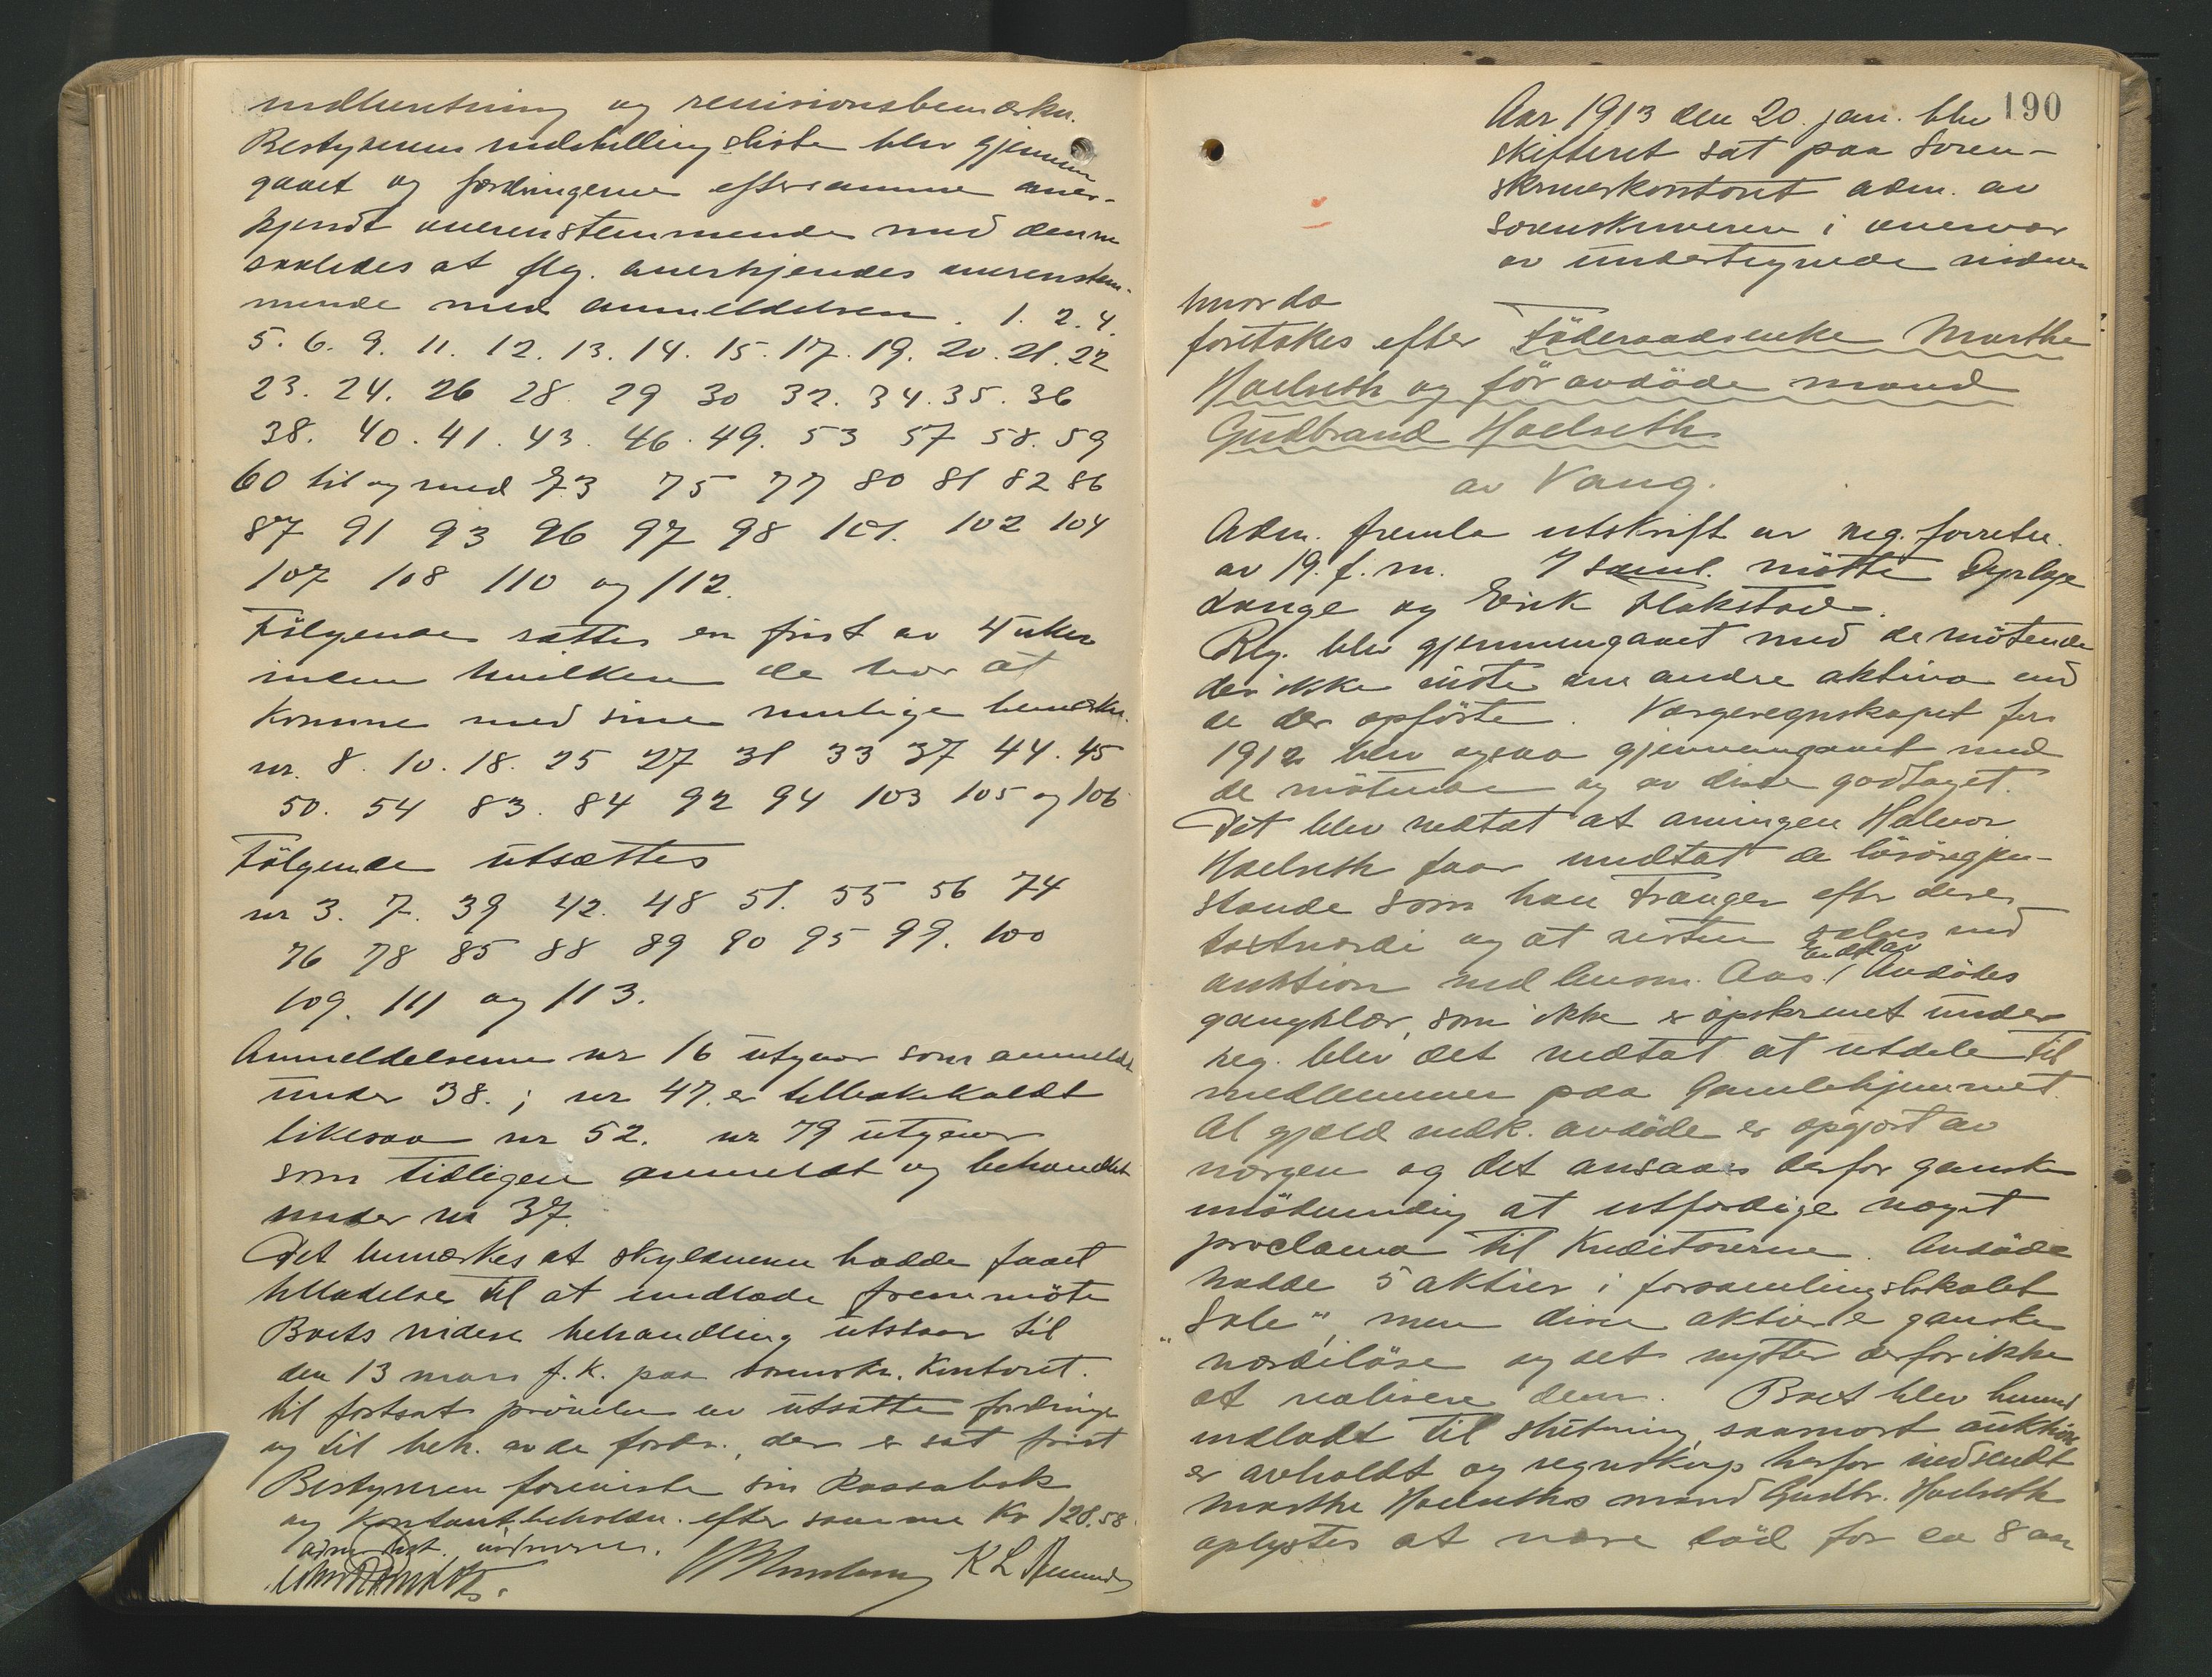 indhentning og revisionsbemærkn.
Bestyrerens indstillingsliste blev gjennem
gaaet og fordringerne efter samme aner-
kjendt overensstemmende med denne
saaledes at flg. anerkjendes overensstem-
mende med anmeldelsen. 1. 2. 4.
5. 6. 9. 11. 12. 13. 14. 15. 17. 19. 20. 21. 22
23. 24. 26 28 29 30 32. 34. 35. 36
38. 40. 41. 43. 46. 49. 53 57 58. 59
60 til og med 73 75 77 80 81 82 86
87 91 93 96 97 98 101. 102 104
107 108 110 og 112.
Følgende sættes en frist av 4 uker
inden hvilken de har at
komme med sine mulige bemerkn.
nr. 8. 10. 18. 25 27 31 33 37 44. 45
50. 54 83. 84 92 94 103 105 og 106
Følgende utsættes
nr 3. 7. 39 42. 48 51. 55 56 74
76 78 85 88 89 90 95 99. 100
109. 111 og 113.
Anmeldelserne nr 16 utgaar som anmeldt
under 38.; nr 47. er tilbakekaldt
likesaa nr 52. nr 79 utgaar
som tidligere anmeldt og behandlet
under nr 37.
Det bemærkes at skyldneren hadde faaet
tilladelse til at undlade fremmøte
Boets videre behandling utstaar til
den 13 mars f.k. paa sorenskr. kontoret.
til fortsat prøvelse av utsatte fordringer
og til beh. av de fordr., der er sat frist
Bestyreren foreviste sin kassabok
og kontantbeholdn. efter samme kr 128.58
K L
190
Aar 1913 den 20. jan. blev
skifteret sat paa soren-
skriverkontoret adm. av
sorenskriveren i overvær
av undertegnede vidner
hvorda
foretokes efter Føderaadsenke Marthe
Hoelseth og før avdøde mand
Gudbrand Hoelseth
av Vang.
Adm. fremla utskrift av reg. forretn.
av 19. f. m. I saml. møtte
Lange og Erik Flakstad.
Reg. blev gjennemgaaet med de møtende
der ikke viste om andre aktiva end
de der opførte. Værgeregnskapet for
1912 blev ogsaa gjennemgaaet med
de møtende og av disse godtaget.
Det blev vedtat at arvingen Halvor
Hoelseth faar undtat de løsøregjen-
stande som han trænger efter deres
takstværdi og at resten sælges ved
auktion ved lensm. Aas. Avdødes
gangklær, som ikke er opskrevet under
reg. blev det vedtat at utdele til
medlemmer paa Gamlehjemmet.
Al gjæld vedk. avdøde er opgjort av
værgen og det ansaaes derfor ganske
unødvendig at utfærdige noget
proclama til kreditorerne. Avdøde
hadde 5 aktier i forsamlingslokalet
"Sole", men disse aktier er ganske
værdiløse og det nytter derfor ikke
at realisere dem. Boet blev herved
indladt til slutning saasnart auktion
er avholdt og regnskap herfor indsendt
Marthe Hoelseths mand Gudbr. Hoelseth
oplystes at være død for ca 8 aar